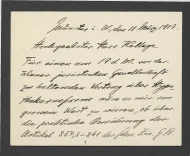 Münster i. W., den 11. März 1913.
Hochgeehrter Herr Kollege
Für einen am 18 d. M. vor der
Wiener juristischen Gesellschaft
zu haltenden Vortrag über Hypo-
thekenreform wäre es mir von
grossem Wert zu wissen, ob über
die praktische Anwendung der
Artikel